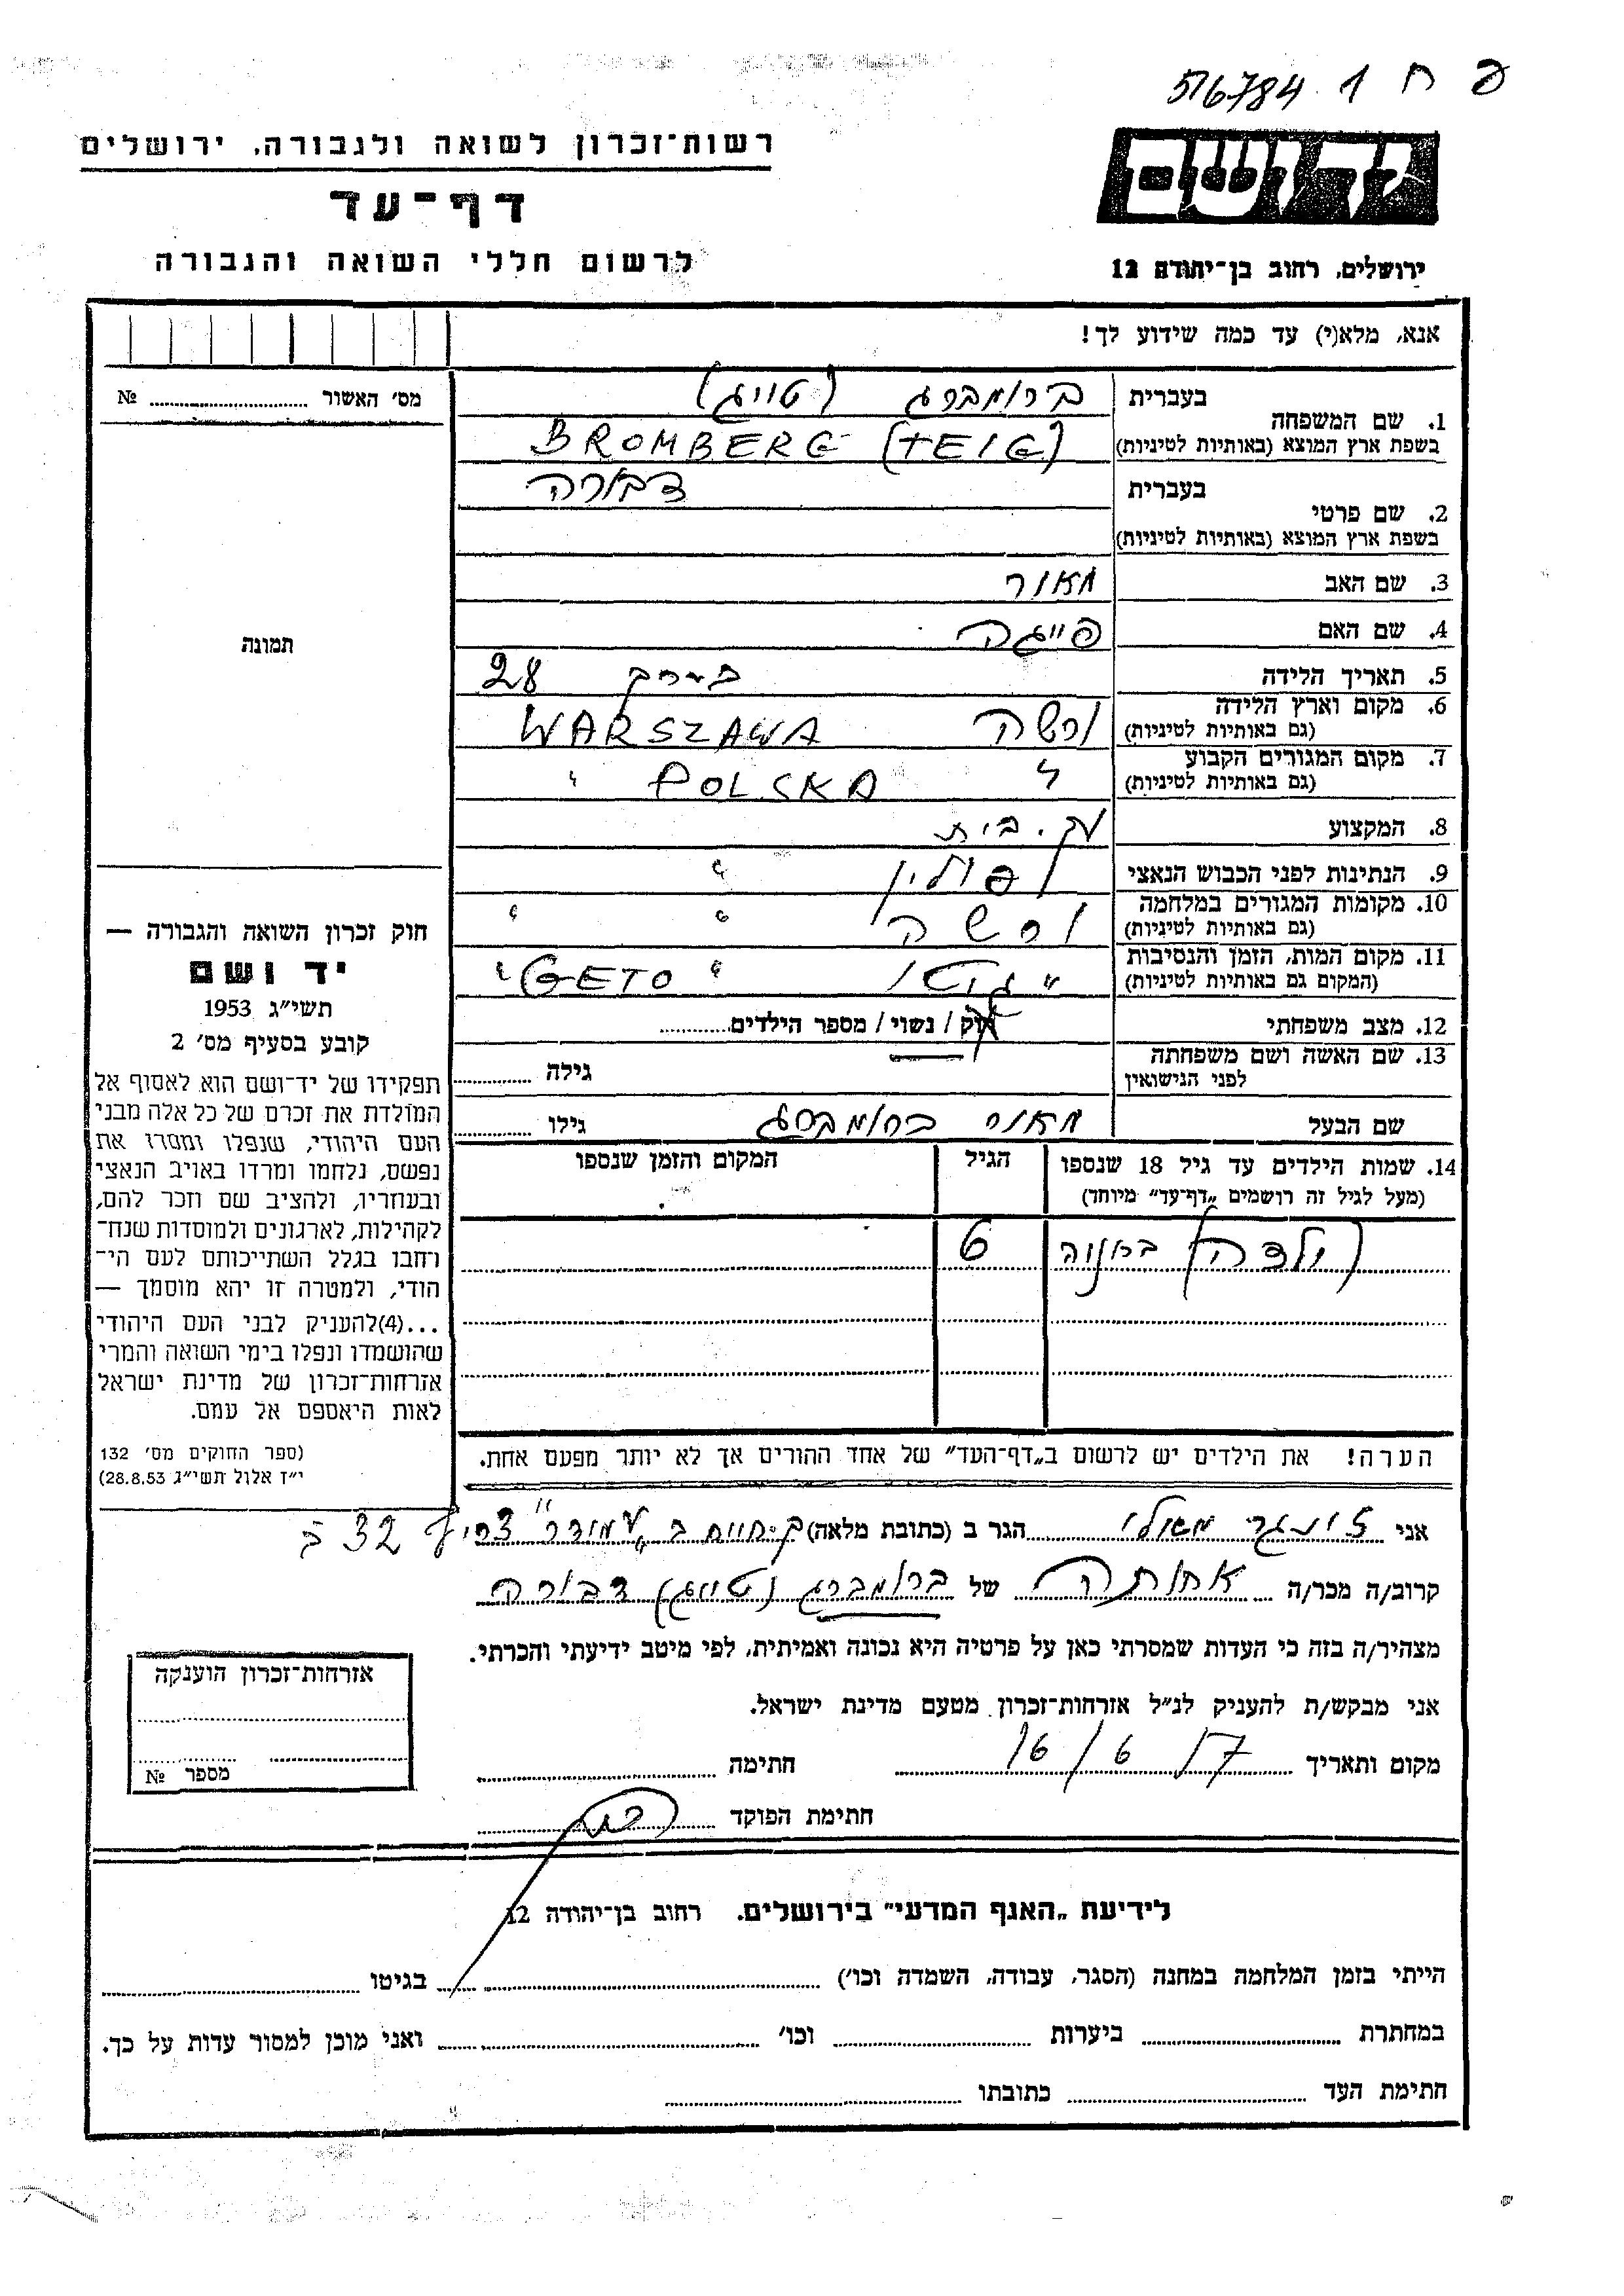 516784 1 ח פ
רשות־זכרון לשואה ולגבורה, ירושלים
דף־עד
לרשום חללי השואה והגבורה
יד ושם
ירושלים, רחוב בן־יהודה 12
אנא, מלא(י) עד כמה שידוע לך!
מס׳ האשור № ........
1. שם המשפחה בעברית ברומברג (טייג)
בשפת ארץ המוצא (באותיות לטיניות) BROMBERG (TEIG)
2. שם פרטי בעברית דבורה
בשפת ארץ המוצא (באותיות לטיניות)
3. שם האב מאור
4. שם האם פייגה
5. תאריך הלידה 28
6. מקום וארץ הלידה ורשה WARSZAWA
(גם באותיות לטיניות)
7. מקום המגורים הקבוע " POLSKA "
(גם באותיות לטיניות)
8. המקצוע עק. בית
9. הנתינות לפני הכבוש הנאצי פולין "
10. מקומות המגורים במלחמה ורשה " "
(גם באותיות לטיניות)
11. מקום המות, הזמן והנסיבות " גיטו " GETO "
(המקום גם באותיות לטיניות)
12. מצב משפחתי רוק / נשוי / מספר הילדים........
13. שם האשה ושם משפחתה גילה ........
לפני הנישואין
שם הבעל מאור ברומברג גילו ........
14. שמות הילדים עד גיל 18 שנספו הגיל המקום והזמן שנספו
(מעל לגיל זה רושמים „דף־עד״ מיוחד)
(ילדה) ברוניה 6
הערה! את הילדים יש לרשום ב„דף־העד״ של אחד ההורים אך לא יותר מפעם אחת.
תמונה
חוק זכרון השואה והגבורה —
יד ושם
תשי״ג 1953
קובע בסעיף מס׳ 2
תפקידו של יד־ושם הוא לאסוף אל
המולדת את זכרם של כל אלה מבני
העם היהודי, שנפלו ומסרו את
נפשם, נלחמו ומרדו באויב הנאצי
ובעוזריו, ולהציב שם וזכר להם,
לקהילות, לארגונים ולמוסדות שנח־
רחבו בגלל השתייכותם לעם הי־
הודי, ולמטרה זו יהא מוסמך —
...(4)להעניק לבני העם היהודי
שהושמדו ונפלו בימי השואה והמרי
אזרחות־זכרון של מדינת ישראל
לאות היאספם אל עמם.
(ספר החוקים מס׳ 132
י״ז אלול תשי״ג 28.8.53)
אני זונגרי הגר ב (כתובת מלאה) ק. חיים ב צריף 32 ב
קרוב/ה מכר/ה אחותה של ברומברג (טייג) דבורה
מצהיר/ה בזה כי העדות שמסרתי כאן על פרטיה היא נכונה ואמיתית, לפי מיטב ידיעתי והכרתי.
אני מבקש/ת להעניק לנ״ל אזרחות־זכרון מטעם מדינת ישראל.
מקום ותאריך 16/6/7 חתימה ........
חתימת הפוקד
אזרחות־זכרון הוענקה
מספר №
לידיעת „האגף המדעי״ בירושלים, רחוב בן־יהודה 12
הייתי בזמן המלחמה במחנה (הסגר, עבודה, השמדה וכו׳) ........ בגיטו ........
במחתרת ........ ביערות ........ וכו׳ ........ ואני מוכן למסור עדות על כך.
חתימת העד ........ כתובתו ........